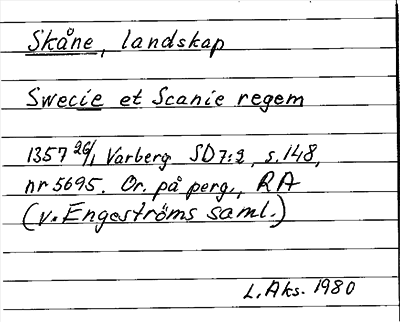 Skåne, landskap
Swecie et Scanie regem
1357 26/1 Varberg SD 7:2, s. 148,
nr 5695. Or. på perg., RA
(v. Engeströms saml.)
L. Aks. 1980